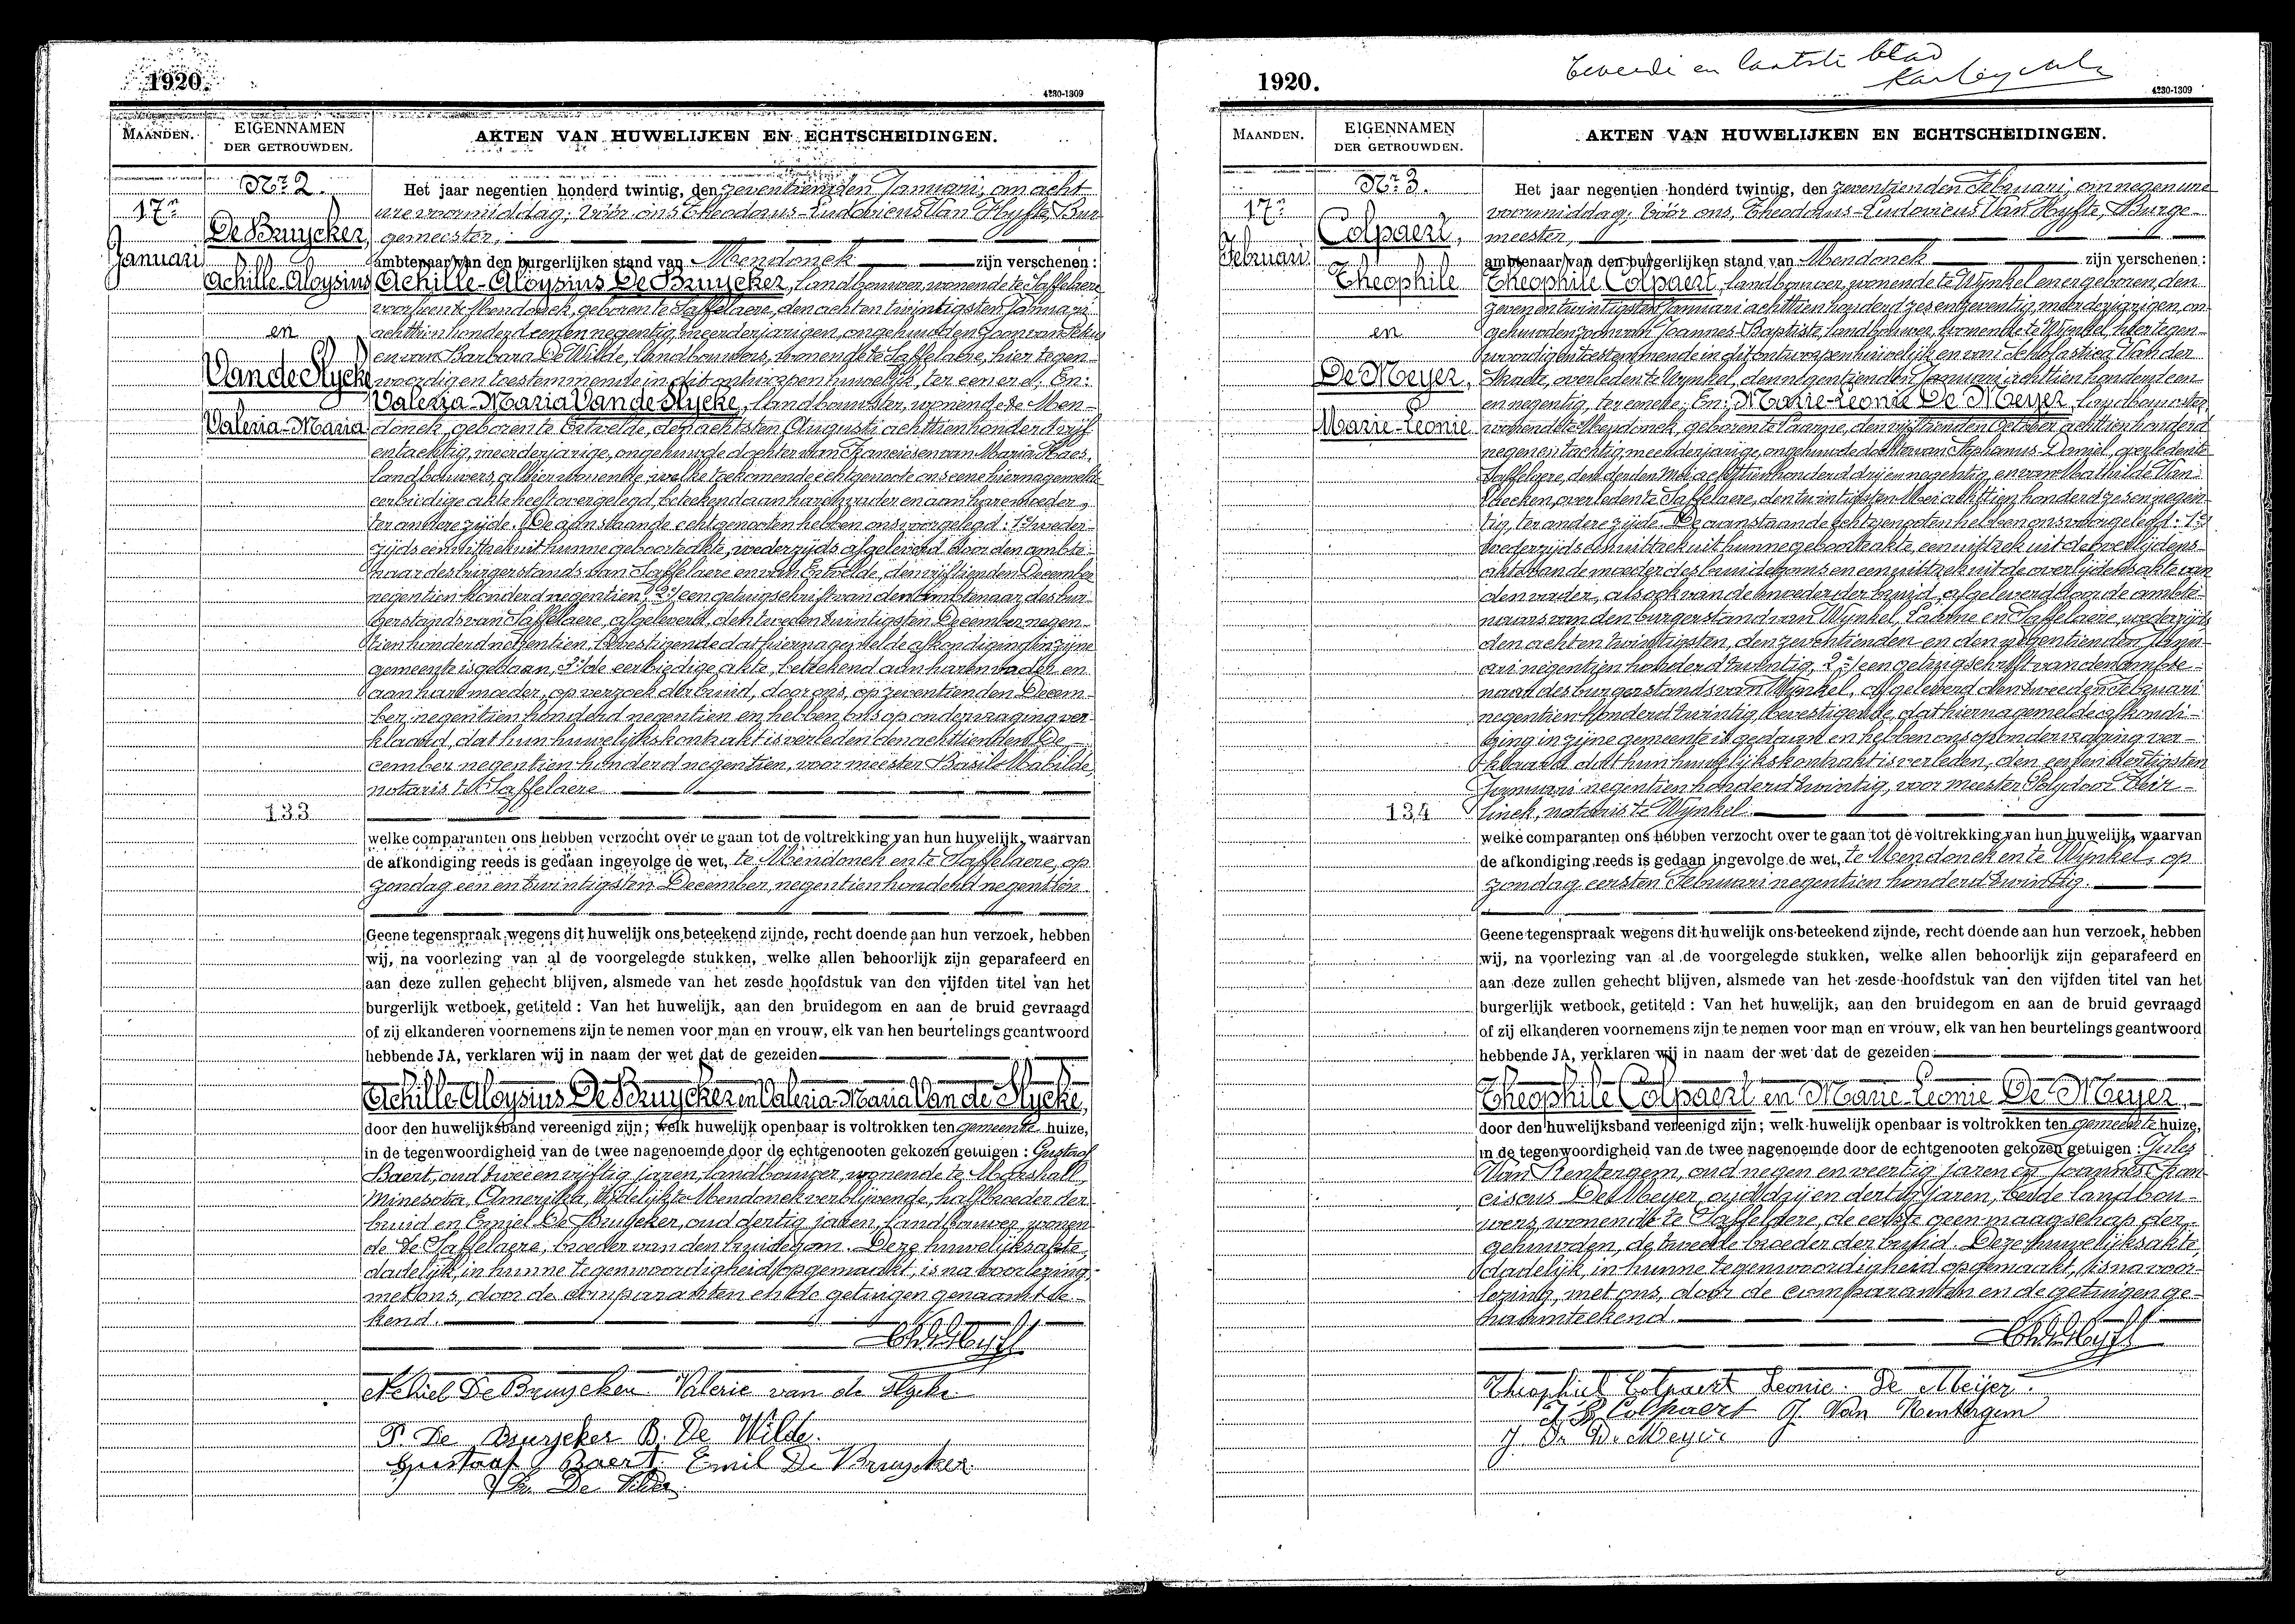 1920.
4230-1309
MAANDEN.
EIGENNAMEN
DER GETROUWDEN.
AKTEN VAN HUWELIJKEN EN ECHTSCHEIDINGEN.
Nr 2.
17n
Januari
De Bruycker,
Achille-Aloysius
en
Van de Slycke
Valeria-Maria
133
Het jaar negentien honderd twintig, den zeventienden Januari, om acht
ure voormiddag, vóór ons Theodorus-Ludovicus Van Hyfte, Bur-
gemeester,
ambtenaar van den burgerlijken stand van Mendonck zijn verschenen:
Achille-Aloysius De Bruycker, landbouwer, wonende te Saffelaere
voorheen te Mendonck, geboren te Saffelaere, den achten twintigsten Januari
achttien honderd een en negentig, meerderjarigen, ongehuwden zoon van
en van Barbara De Wilde, landbouwers, wonende te Saffelaere, hier tegen-
woordig en toestemmende in dit ontworpen huwelijk, ter eenerd; En:
Valeria-Maria Van de Slycke, landbouwster, wonende te Men-
donck, geboren te Ertvelde, den achtsten Augusti achttien honderd vijf
en tachtig, meerderjarige, ongehuwde dochter van Francies en van Maria Haes,
landbouwers, alhier wonende, welke toekomende echtgenoote ons eene hierna gemelde
eerbiedige akte heeft overgelegd, beteekend aan haren vader en aan hare moeder,
ter andere zijde. De aanstaande echtgenooten hebben ons voorgelegd: 1º weder-
zijds een uittrek uit hunne geboorteakte, wederzijds afgeleverd door den ambte-
naar des burgerstands van Saffelaere en van Ertvelde, den vijftienden December
negentien honderd negentien; 2º een getuigschrift van den ambtenaar des bur-
gerstands van Saffelaere, afgeleverd, den tweeden twintigsten December negen-
tien honderd negentien, bevestigende dat hierna gemelde afkondiging in zijne
gemeente is gedaan, 3º de eerbiedige akte, beteekend aan haren vader en
aan hare moeder, op verzoek der bruid, door ons, op zeventienden Decem-
ber negentien honderd negentien en hebben ons op ondervraging ver-
klaard, dat hun huwelijkskontrakt is verleden den achttienden De-
cember negentien honderd negentien, voor meester Basile Mabilde,
notaris te Saffelaere
welke comparanten ons hebben verzocht over te gaan tot de voltrekking van hun huwelijk, waarvan
de afkondiging reeds is gedaan ingevolge de wet, te Mendonck en te Saffelaere, op
zondag een en twintigsten December, negentien honderd negentien
Geene tegenspraak wegens dit huwelijk ons beteekend zijnde, recht doende aan hun verzoek, hebben
wij, na voorlezing van al de voorgelegde stukken, welke allen behoorlijk zijn geparafeerd en
aan deze zullen gehecht blijven, alsmede van het zesde hoofdstuk van den vijfden titel van het
burgerlijk wetboek, getiteld : Van het huwelijk, aan den bruidegom en aan de bruid gevraagd
of zij elkanderen voornemens zijn te nemen voor man en vrouw, elk van hen beurtelings geantwoord
hebbende JA, verklaren wij in naam der wet dat de gezeiden
Achille-Aloysius De Bruycker en Valeria-Maria Van de Slycke,
door den huwelijksband vereenigd zijn; welk huwelijk openbaar is voltrokken ten gemeente huize,
in de tegenwoordigheid van de twee nagenoemde door de echtgenooten gekozen getuigen : Gustaaf
Baert, oud twee en vijftig jaren, landbouwer, wonende te Marshall,
Minesota, Amerika, tijdelijk te Mendonck verblijvende, halfbroeder der
bruid en Emiel De Bruycker, oud dertig jaren, landbouwer, wonen-
de te Saffelaere, broeder van den bruidegom. Deze huwelijksakte,
dadelijk, in hunne tegenwoordigheid opgemaakt, is na voorlezing,
met ons, door de comparanten en de getuigen genaamtee-
kend.
Achiel De Bruycker Valerie van de Slycke
P. De Bruycker B. De Wilde.
Gustaaf Baert Emil De Bruycker

1920.
Tweede en laatste blad
4230-1309
MAANDEN.
EIGENNAMEN
DER GETROUWDEN.
AKTEN VAN HUWELIJKEN EN ECHTSCHEIDINGEN.
Nr 3.
17n
Februari
Colpaert,
Theophile
en
De Meyer,
Marie-Leonie
134
Het jaar negentien honderd twintig, den zeventienden Februari, om negen ure
voormiddag, vóór ons, Theodorus-Ludovicus Van Hyfte, Burge-
meester,
ambtenaar van den burgerlijken stand van Mendonck zijn verschenen:
Theophile Colpaert, landbouwer, wonende te Wynkel en er geboren, den
zeven en twintigsten Januari achttien honderd zes en zeventig, meerderjarigen, on-
gehuwden zoon van Joannes-Baptiste, landbouwer, wonende te Wynkel, hier tegen-
woordig en toestemmende in dit ontworpen huwelijk en van Scholastica Van der
Straete, overleden te Wynkel, den negentienden Januari achttien honderd een
en negentig, ter eenerre; En: Marie-Leonie De Meyer, landbouwster,
wonende te Mendonck, geboren te Laarne, den vijftienden October achttien honderd
negen en tachtig, meerderjarige, ongehuwde dochter van Stephanus-Daniel, overleden te
Saffelaere, den derden Mei achttien honderd drij en negentig, en van Mathilde Van
overleden te Saffelaere, den twintigsten Mei achttien honderd zes en negen-
tig, ter andere zijde. De aanstaande echtgenooten hebben ons voorgelegd: 1º
wederzijds een uittrek uit hunne geboorteakte, een uittrek uit de overlijdens-
akte van de moeder des bruidegoms en een uittrek uit de overlijdensakte van
den vader, alsook van de moeder der bruid, afgeleverd door de ambte-
naars van den burgerstand van Wynkel, Laarne en Saffelaere, wederzijds
den achten twintigsten, den zeventienden en den negentienden Janu-
ari negentien honderd twintig, 2º een getuigschrift van den ambte-
naar des burgerstands van Wynkel, afgeleverd den tweeden Februari
negentien honderd twintig, bevestigende, dat hierna gemelde afkondi-
ging in zijne gemeente is gedaan en hebben ons op ondervraging ver-
klaard, dat hun huwelijkskontrakt is verleden, den een en dertigsten
Januari negentien honderd twintig, voor meester Polydoor Teir-
linck, notaris te Wynkel
welke comparanten ons hebben verzocht over te gaan tot de voltrekking van hun huwelijk, waarvan
de afkondiging reeds is gedaan ingevolge de wet, te Mendonck en te Wynkel, op
zondag eersten Februari negentien honderd twintig.
Geene tegenspraak wegens dit huwelijk ons beteekend zijnde, recht doende aan hun verzoek, hebben
wij, na voorlezing van al de voorgelegde stukken, welke allen behoorlijk zijn geparafeerd en
aan deze zullen gehecht blijven, alsmede van het zesde hoofdstuk van den vijfden titel van het
burgerlijk wetboek, getiteld : Van het huwelijk, aan den bruidegom en aan de bruid gevraagd
of zij elkanderen voornemens zijn te nemen voor man en vrouw, elk van hen beurtelings geantwoord
hebbende JA, verklaren wij in naam der wet dat de gezeiden
Theophile Colpaert en Marie-Leonie De Meyer,
door den huwelijksband vereenigd zijn; welk huwelijk openbaar is voltrokken ten gemeente huize,
in de tegenwoordigheid van de twee nagenoemde door de echtgenooten gekozen getuigen : Jules
Van Kenbergem, oud negen en veertig jaren en Joannes-Fran-
ciscus De Meyer, oud drij en dertig jaren, beide landbou-
wers, wonende te Saffelaere, de eerste geen maagschap der
gehuwden, de tweede broeder der bruid. Deze huwelijksakte,
dadelijk, in hunne tegenwoordigheid opgemaakt, is na voor-
lezing, met ons, door de comparanten en de getuigen ge-
naamteekend.
Theophiel Colpaert Leonie De Meijer.
J B Colpaert J. Van Kenbergem
J. Fr. De Meyer